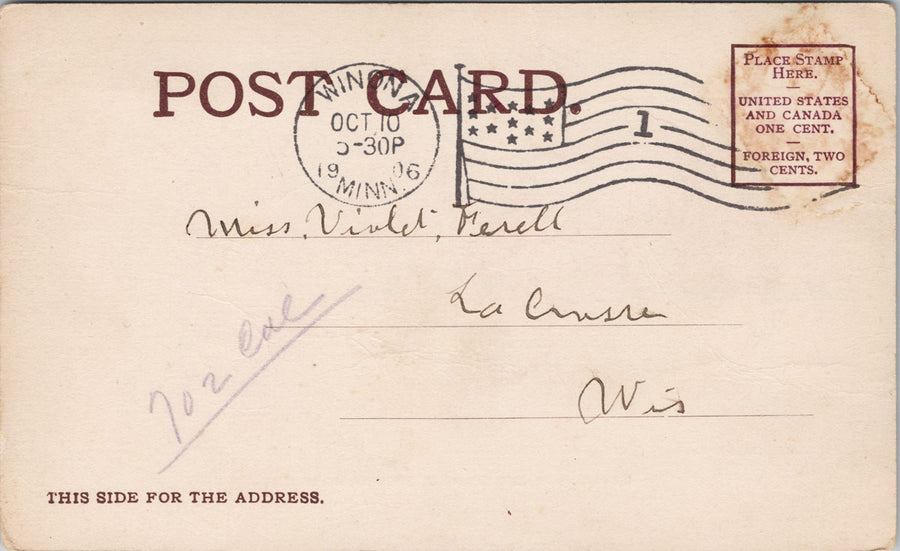 POST CARD.
WINONA
OCT 10
-30P
1906
MINN.
1
PLACE STAMP
HERE.
—
UNITED STATES
AND CANADA
ONE CENT.
—
FOREIGN, TWO
CENTS.
Miss, Violet, Ferell
La Crosse
Wis
702
THIS SIDE FOR THE ADDRESS.